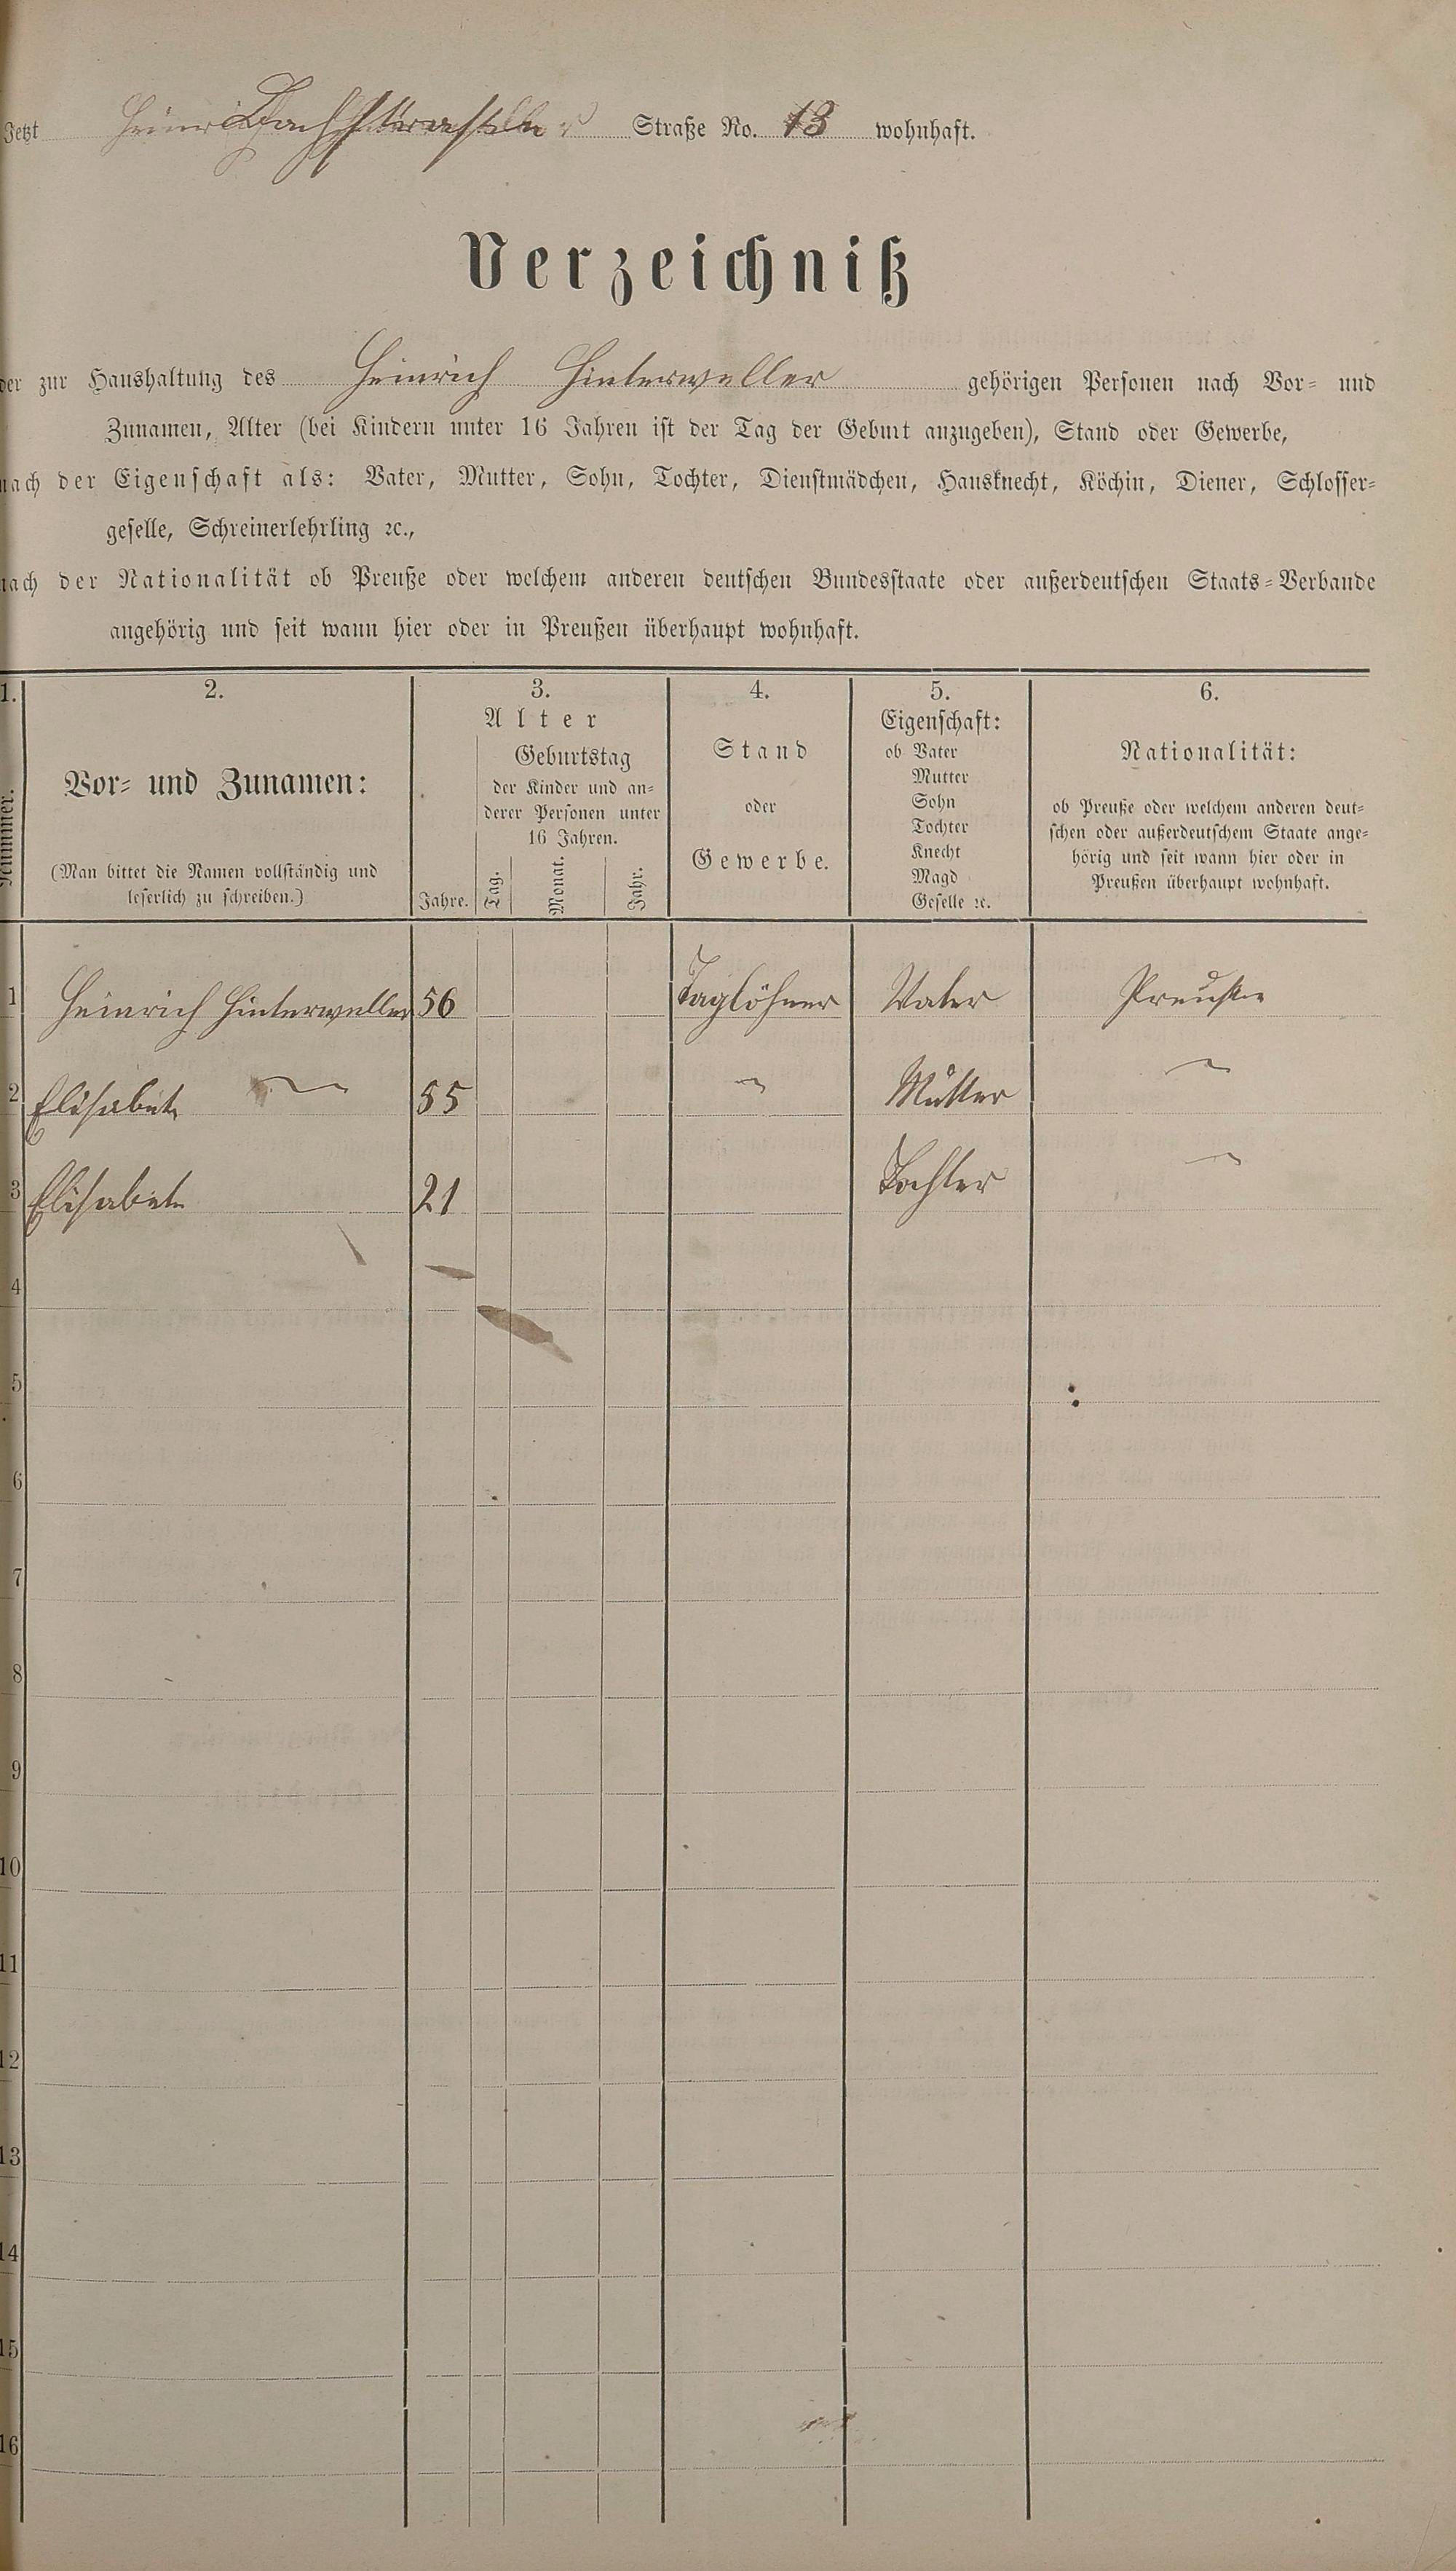 Jetzt Straße No. 13 wohnhaft.
Verzeichniß
der zur Haushaltung des Heinrich Hinterweller gehörigen Personen nach Vor- und
Zunamen, Alter (bei Kindern unter 16 Jahren ist der Tag der Geburt anzugeben), Stand oder Gewerbe,
nach der Eigenschaft als: Vater, Mutter, Sohn, Tochter, Dienstmädchen, Hausknecht, Köchin, Diener, Schlosser-
geselle, Schreinerlehrling ꝛc.,
nach der Nationalität ob Preuße oder welchem anderen deutschen Bundesstaate oder außerdeutschen Staats-Verbande
angehörig und seit wann hier oder in Preußen überhaupt wohnhaft.
1. 2. 3. 4. 5. 6.
Nummer.
Vor- und Zunamen:
(Man bittet die Namen vollständig und
leserlich zu schreiben.)
Alter
Jahre.
Geburtstag
der Kinder und an-
derer Personen unter
16 Jahren.
Tag. Monat. Jahr.
Stand
oder
Gewerbe.
Eigenschaft:
ob Vater
Mutter
Sohn
Tochter
Knecht
Magd
Geselle ꝛc.
Nationalität:
ob Preuße oder welchem anderen deut-
schen oder außerdeutschem Staate ange-
hörig und seit wann hier oder in
Preußen überhaupt wohnhaft.
1 Heinrich Hinterweller 56 Taglöhner Vater Preuße
2 Elisabet 55 Mutter
3 Elisabet 21 Tochter
4
5
6
7
8
9
10
11
12
13
14
15
16